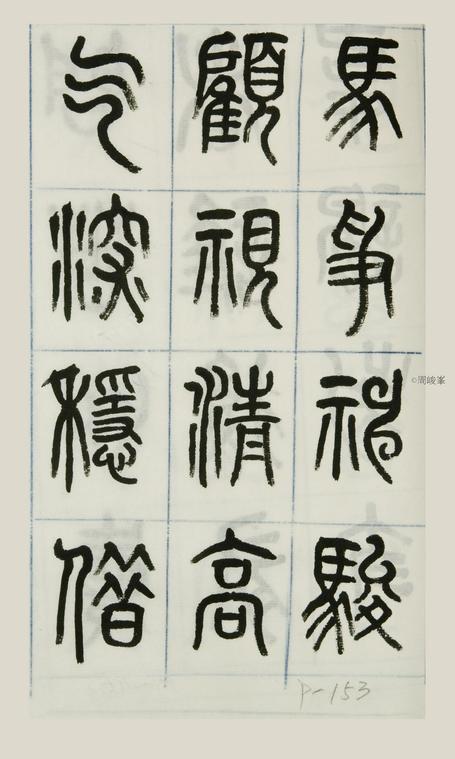 馬爭神駿
顧視清高
气深穩借
©周峻峯
P-153